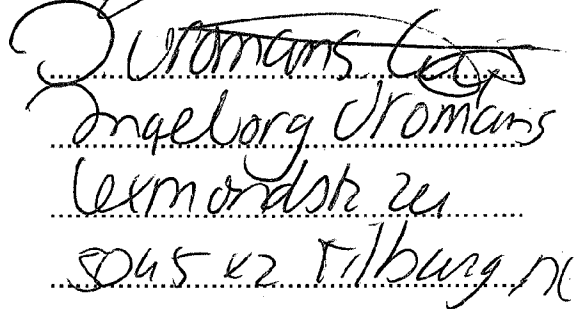 Vromans
Ingeborg Vromans
Lexmondstr 24
5045 XZ Tilburg NL